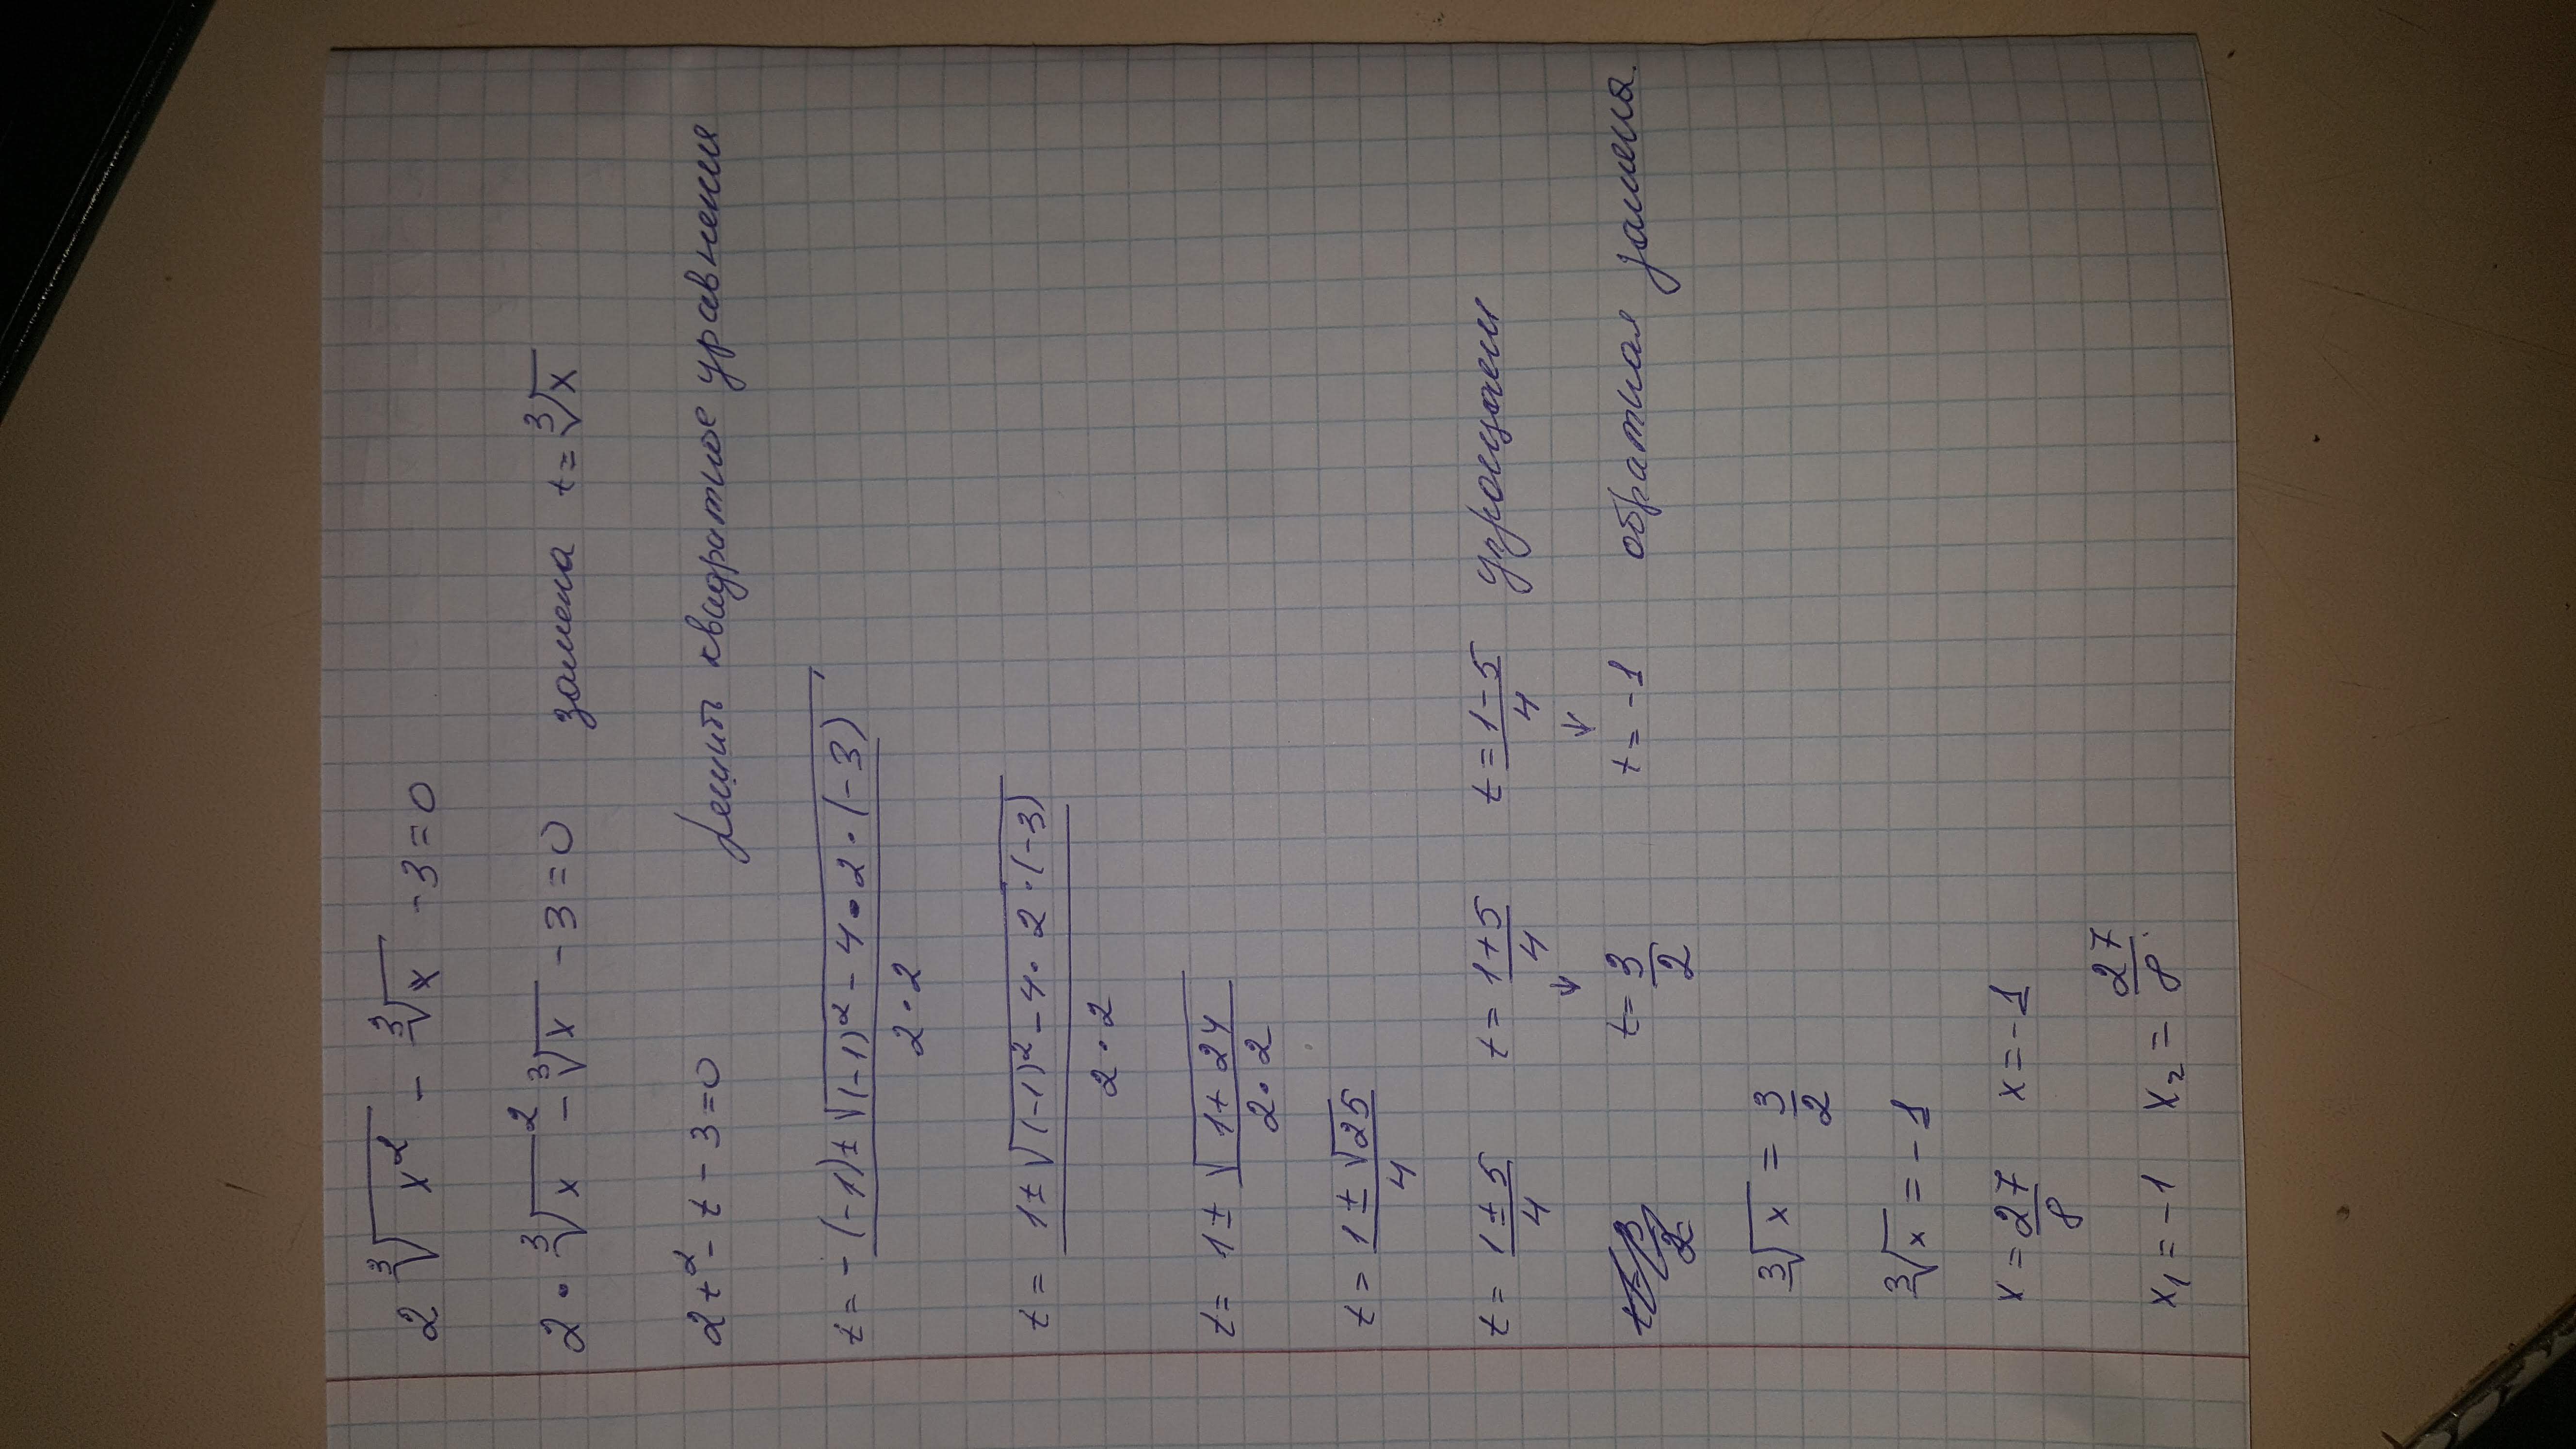 2∛x² - ∛x - 3 = 0
2 · ∛x² - ∛x - 3 = 0 замена t = ∛x
2t² - t - 3 = 0 Решить квадратное уравнения
t = -(-1) ± √((-1)² - 4 · 2 · (-3)) / 2 · 2
t = 1 ± √((-1)² - 4 · 2 · (-3)) / 2 · 2
t = 1 ± √(1 + 24) / 2 · 2
t = 1 ± √25 / 4
t = 1 ± 5 / 4 t = 1 + 5 / 4 t = 1 - 5 / 4 упрощаем
↓ ↓
t = 3/2 t = -1 обратная замена.
∛x = 3/2
∛x = -1
x = 27/8 x = -1
x₁ = -1 x₂ = 27/8.